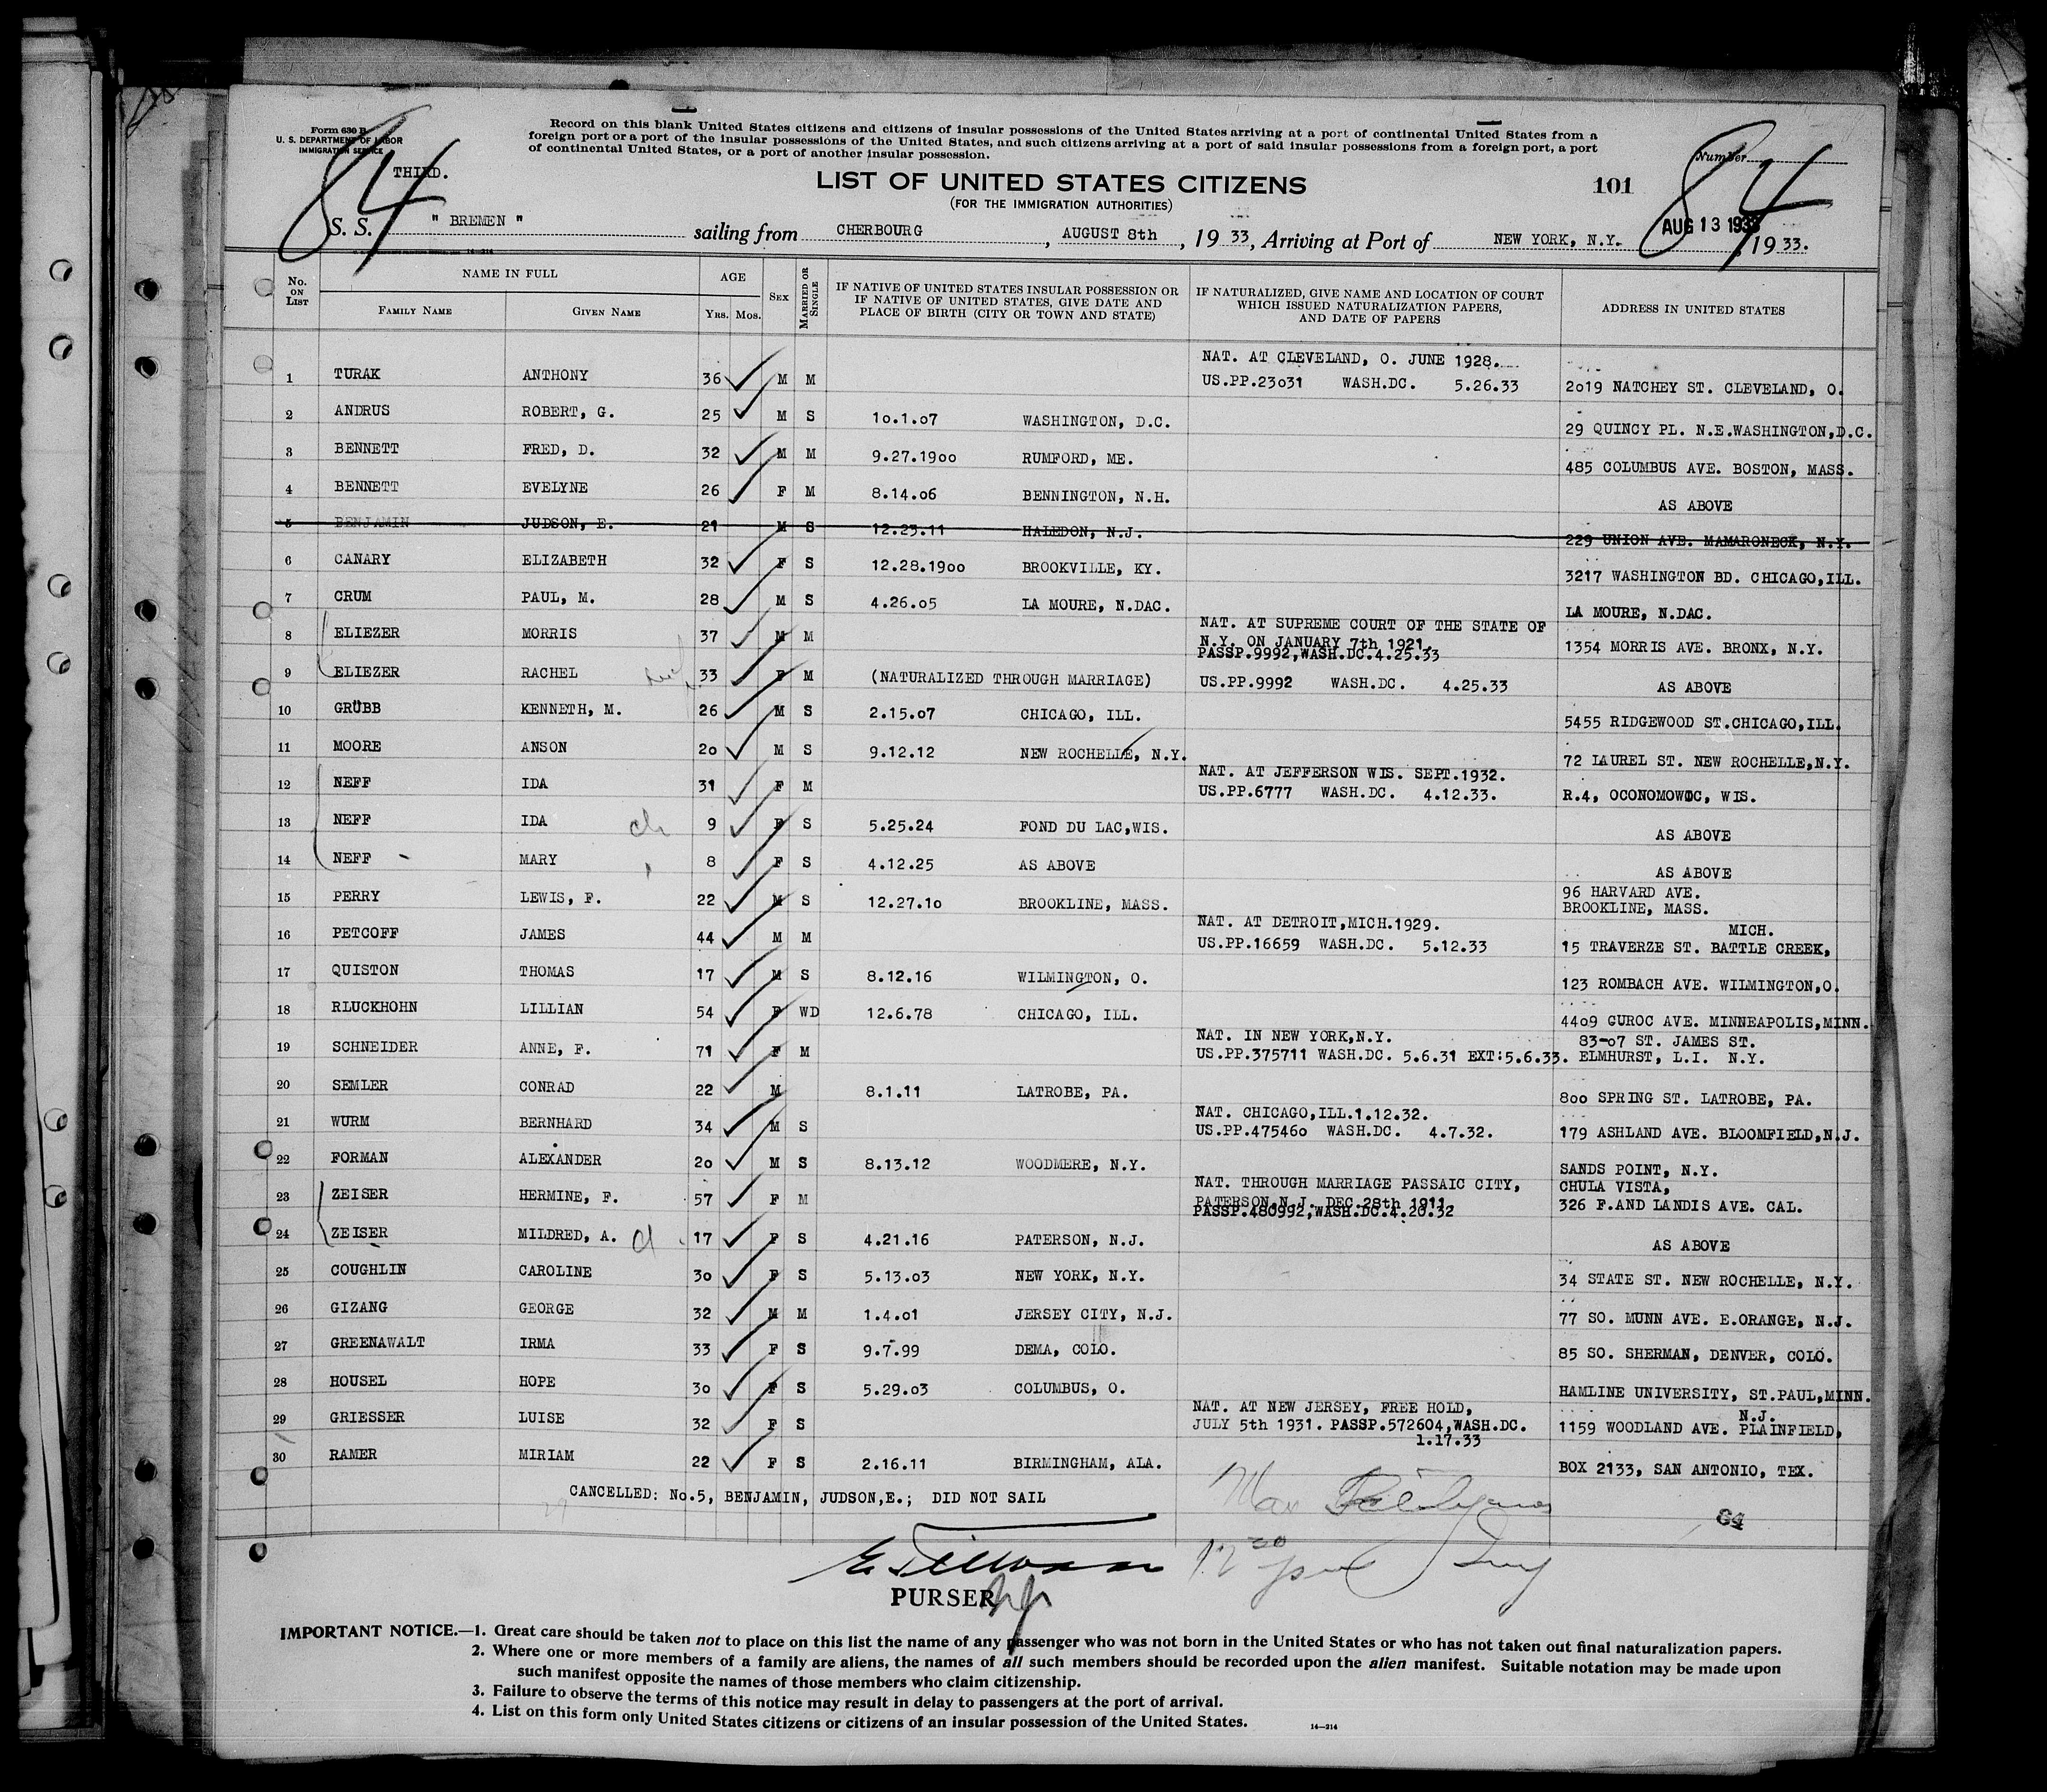 Form 630 B
U. S. DEPARTMENT OF LABOR
IMMIGRATION SERVICE
THIRD.
84
Record on this blank United States citizens and citizens of insular possessions of the United States arriving at a port of continental United States from a
foreign port or a port of the insular possessions of the United States, and such citizens arriving at a port of said insular possessions from a foreign port, a port
of continental United States, or a port of another insular possession.
Number
84
LIST OF UNITED STATES CITIZENS
101
(FOR THE IMMIGRATION AUTHORITIES)
S. S. " BREMEN " sailing from CHERBOURG, AUGUST 8th, 19 33, Arriving at Port of NEW YORK, N.Y. AUG 13 1933, 19 33.
No. ON LIST
NAME IN FULL
FAMILY NAME GIVEN NAME
AGE
YRS. MOS.
SEX
MARRIED OR SINGLE
IF NATIVE OF UNITED STATES INSULAR POSSESSION OR
IF NATIVE OF UNITED STATES, GIVE DATE AND
PLACE OF BIRTH (CITY OR TOWN AND STATE)
IF NATURALIZED, GIVE NAME AND LOCATION OF COURT
WHICH ISSUED NATURALIZATION PAPERS,
AND DATE OF PAPERS
ADDRESS IN UNITED STATES
NAT. AT CLEVELAND, O. JUNE 1928.
1 TURAK ANTHONY 36 M M US.PP.23031 WASH.DC. 5.26.33 2019 NATCHEY ST. CLEVELAND, O.
2 ANDRUS ROBERT, G. 25 M S 10.1.07 WASHINGTON, D.C. 29 QUINCY PL. N.E.WASHINGTON,D.C.
3 BENNETT FRED, D. 32 M M 9.27.1900 RUMFORD, ME. 485 COLUMBUS AVE. BOSTON, MASS.
4 BENNETT EVELYNE 26 F M 8.14.06 BENNINGTON, N.H. AS ABOVE
5 BENJAMIN JUDSON, E. 21 M S 12.23.11 HALEDON, N.J. 229 UNION AVE. MAMARONECK, N.Y.
6 CANARY ELIZABETH 32 F S 12.28.1900 BROOKVILLE, KY. 3217 WASHINGTON BD. CHICAGO,ILL.
7 CRUM PAUL, M. 28 M S 4.26.05 LA MOURE, N.DAC. LA MOURE, N.DAC.
NAT. AT SUPREME COURT OF THE STATE OF
8 ELIEZER MORRIS 37 M M N.Y. ON JANUARY 7th 1921. 1354 MORRIS AVE. BRONX, N.Y.
PASSP.9992,WASH.DC.4.25.33
9 ELIEZER RACHEL 33 F M (NATURALIZED THROUGH MARRIAGE) US.PP.9992 WASH.DC. 4.25.33 AS ABOVE
10 GRUBB KENNETH, M. 26 M S 2.15.07 CHICAGO, ILL. 5455 RIDGEWOOD ST.CHICAGO,ILL.
11 MOORE ANSON 20 M S 9.12.12 NEW ROCHELLE, N.Y. 72 LAUREL ST. NEW ROCHELLE,N.Y.
NAT. AT JEFFERSON WIS. SEPT.1932.
12 NEFF IDA 31 F M US.PP.6777 WASH.DC. 4.12.33. R.4, OCONOMOWOC, WIS.
13 NEFF IDA ch 9 F S 5.25.24 FOND DU LAC,WIS. AS ABOVE
14 NEFF MARY 8 F S 4.12.25 AS ABOVE AS ABOVE
96 HARVARD AVE.
15 PERRY LEWIS, F. 22 M S 12.27.10 BROOKLINE, MASS. BROOKLINE, MASS.
NAT. AT DETROIT,MICH.1929. MICH.
16 PETCOFF JAMES 44 M M US.PP.16659 WASH.DC. 5.12.33 15 TRAVERZE ST. BATTLE CREEK,
17 QUISTON THOMAS 17 M S 8.12.16 WILMINGTON, O. 123 ROMBACH AVE. WILMINGTON,O.
18 RLUCKHOHN LILLIAN 54 F WD 12.6.78 CHICAGO, ILL. 4409 GUROC AVE. MINNEAPOLIS,MINN.
NAT. IN NEW YORK,N.Y. 83-07 ST. JAMES ST.
19 SCHNEIDER ANNE, F. 71 F M US.PP.375711 WASH.DC. 5.6.31 EXT:5.6.33. ELMHURST, L.I. N.Y.
20 SEMLER CONRAD 22 M 8.1.11 LATROBE, PA. 800 SPRING ST. LATROBE, PA.
NAT. CHICAGO,ILL.1.12.32.
21 WURM BERNHARD 34 M S US.PP.475460 WASH.DC. 4.7.32. 179 ASHLAND AVE. BLOOMFIELD,N.J.
22 FORMAN ALEXANDER 20 M S 8.13.12 WOODMERE, N.Y. SANDS POINT, N.Y.
NAT. THROUGH MARRIAGE PASSAIC CITY, CHULA VISTA,
23 ZEISER HERMINE, F. 57 F M PATERSON,N.J. DEC.28th 1911. 326 F.AND LANDIS AVE. CAL.
PASSP.480992,WASH.DC.4.20.32
24 ZEISER MILDRED, A. 17 F S 4.21.16 PATERSON, N.J. AS ABOVE
25 COUGHLIN CAROLINE 30 F S 5.13.03 NEW YORK, N.Y. 34 STATE ST. NEW ROCHELLE, N.Y.
26 GIZANG GEORGE 32 M M 1.4.01 JERSEY CITY, N.J. 77 SO. MUNN AVE. E.ORANGE, N.J.
27 GREENAWALT IRMA 33 F S 9.7.99 DEMA, COLO. 85 SO. SHERMAN, DENVER, COLO.
28 HOUSEL HOPE 30 F S 5.29.03 COLUMBUS, O. HAMLINE UNIVERSITY, ST.PAUL,MINN.
NAT. AT NEW JERSEY, FREE HOLD, N.J.
29 GRIESSER LUISE 32 F S JULY 5th 1931. PASSP.572604,WASH.DC. 1159 WOODLAND AVE. PLAINFIELD,
1.17.33
30 RAMER MIRIAM 22 F S 2.16.11 BIRMINGHAM, ALA. BOX 2133, SAN ANTONIO, TEX.
CANCELLED: No.5, BENJAMIN, JUDSON,E.; DID NOT SAIL
84
PURSER
IMPORTANT NOTICE.—1. Great care should be taken not to place on this list the name of any passenger who was not born in the United States or who has not taken out final naturalization papers.
2. Where one or more members of a family are aliens, the names of all such members should be recorded upon the alien manifest. Suitable notation may be made upon
such manifest opposite the names of those members who claim citizenship.
3. Failure to observe the terms of this notice may result in delay to passengers at the port of arrival.
4. List on this form only United States citizens or citizens of an insular possession of the United States.
14—214